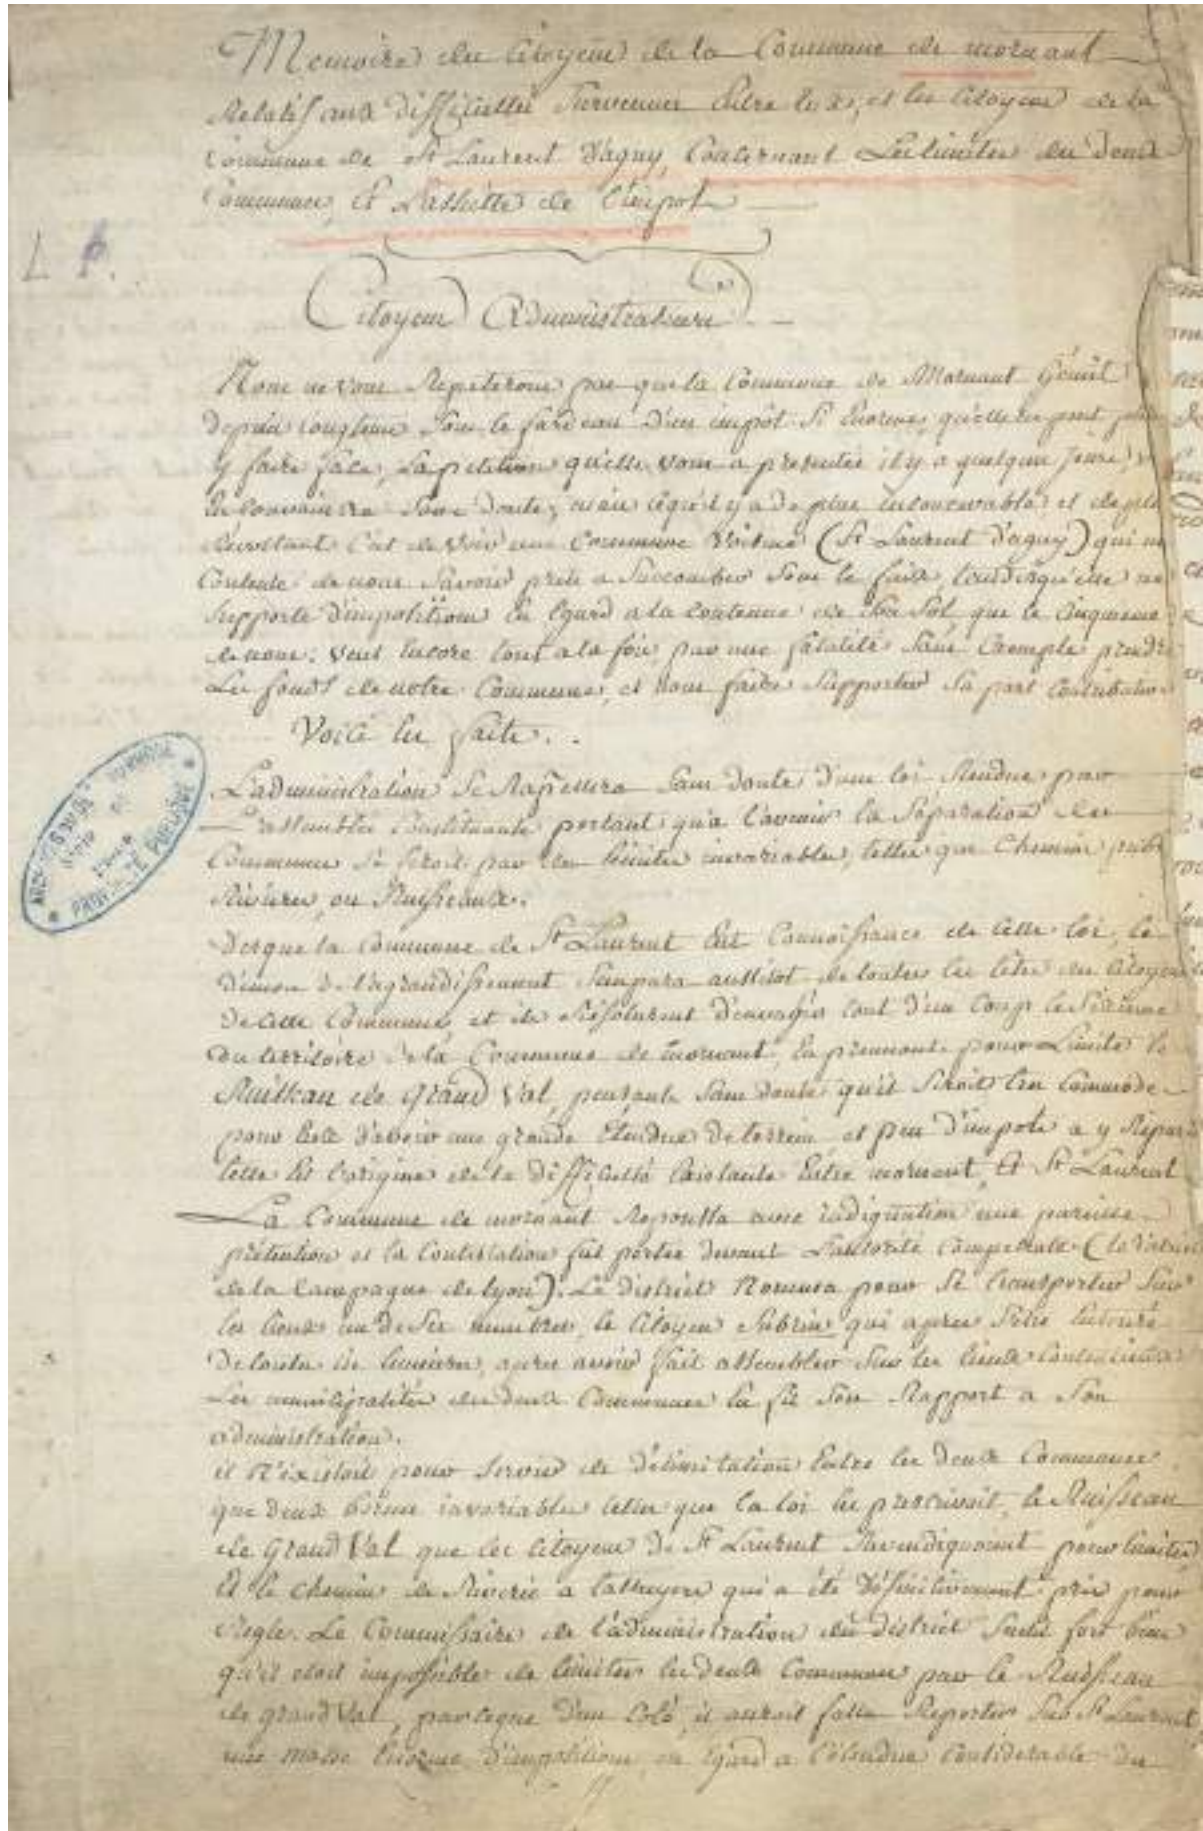 Memoire des Citoyens de la Commune de mornant
Relatif aux difficultés Survenues Entre eux, et les Citoyens de la
Commune de St Laurent d'aguy, Concernant Les limites des deux
Communes, et Lassiette de l'impot
L P.
Citoyens Administrateurs
Nous ne vous Repeterons pas que la Commune de Mornant Gémit
depuis longtems Sous le fardeau d'un impôt Si Enorme, qu'elle ne peut
y faire face, La petition qu'elle vous a presentée il y a quelques jours,
En Convaincra Sans doute, mais ce qu'il y a de plus inconcevable et de plus
Révoltant C'est de Voir une Commune Voisine (St Laurent d'aguy) qui
Contente de nous Savoir prets a Succomber Sous le faix, tandis qu'elle ne
Supporte d'impositions En Egard a la contenue de Son Sol que le cinquieme
de nous. Veut Encore tout a la fois par une fatalité Sans Exemple prendre
Les fonds de notre Commune, et nous faire Supporter Sa part Contributive
Voici les faits . .
L'administration Se Rapellera Sans doute d'une loi Rendue par
L'assemblée Constituante portant qu'a l'avenir la Séparation des
Communes Se feroit par des limites invariables, telles que Chemins
Rivieres, ou Ruisseaux.
Des que la Commune de St Laurent Eut Connoissance de cette loi, le
démon de l'agrandissement S'empara aussitot de toutes les têtes des Citoyens
De cette Commune, et ils Résolurent d'envahir tout d'un Coup le Sixieme
du territoire de la Commune de mornant, En prennant pour Limite le
Ruisseau de Grand Val, pensant Sans doute qu'il Seroit bien Commode
pour Eux d'avoir une grande Etendue de terrein et peu d'impots a y
telle Est l'origine de la Difficulté Existante Entre mornant, Et St Laurent
La Commune de mornant Repoussa avec indignation une pareille
prétention et la Contestation fut portée devant L'autorité Competente (le district
de la Campagne de Lyon). Le District Nomma pour Se transporter Sur
les lieux un de Ses membres, le Citoyen Subrin qui apres S'etre Entouré
De toutes les lumieres, apres avoir fait assembler Sur les lieux Contentieux
Les municipalités des deux Communes En fit Son Rapport a Son
administration.
il N'existoit pour Servir de Délimitation Entre les deux Communes
que deux bornes invariables telles que la loi les prescrivoit, le Ruisseau
de Grand Val que les Citoyens De St Laurent Revendiquoient pour limites
Et le chemin de Riverie a qui a été Définitivement pris pour
Regle. Le Commissaire de l'administration du district Sentit fort bien
qu'il etoit impossible de limiter les deux Communes par le Ruisseau
de grand Val, parceque d'un Coté, il auroit fallu Reporter Sur St Laurent,
une masse Enorme d'impositions, en Egard a l'étendue Considerable du